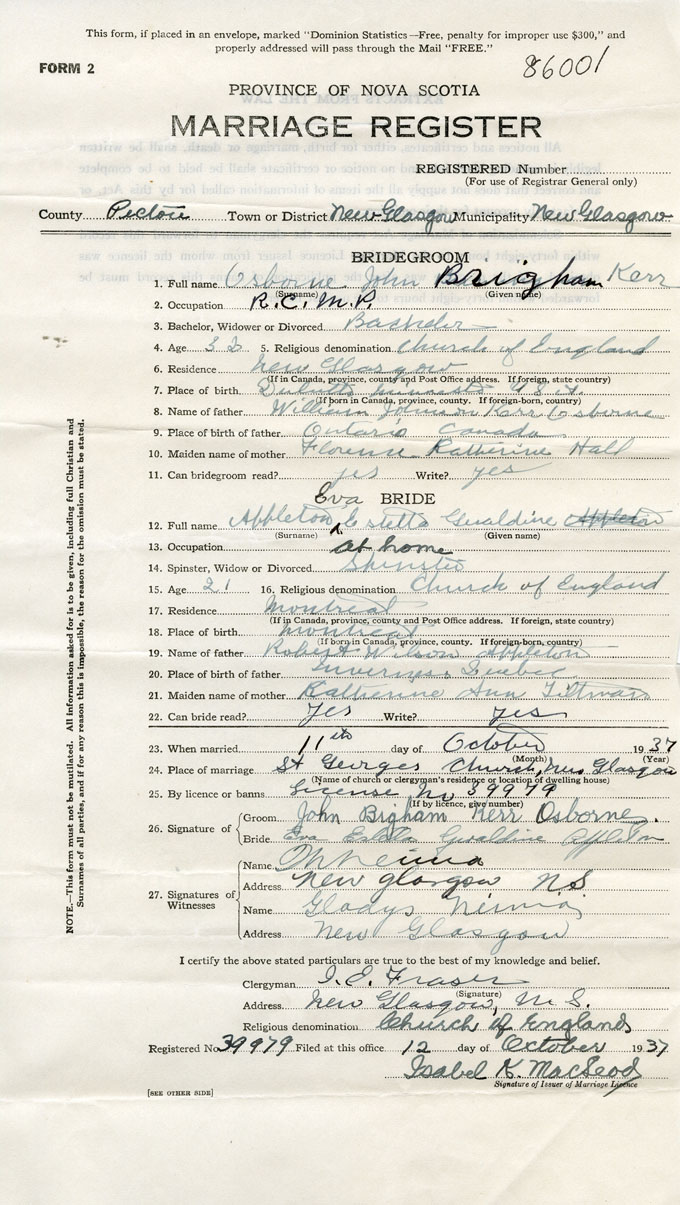 This form, if placed in an envelope, marked "Dominion Statistics—Free, penalty for improper use $300," and
properly addressed will pass through the Mail "FREE."
FORM 2
86001
PROVINCE OF NOVA SCOTIA
MARRIAGE REGISTER
REGISTERED Number
(For use of Registrar General only)
County Pictou Town or District New Glasgow Municipality New Glasgow
BRIDEGROOM
1. Full name Osborne John Brigham Kerr
(Surname) (Given name)
2. Occupation R.C.M.P.
3. Bachelor, Widower or Divorced Bachelor
4. Age 32 5. Religious denomination Church of England
6. Residence New Glasgow
(If in Canada, province, county and Post Office address. If foreign, state country)
7. Place of birth Duluth U.S.A.
(If born in Canada, province, county. If foreign-born, country)
8. Name of father William Johnson Kerr Osborne
9. Place of birth of father Ontario Canada
10. Maiden name of mother Florence Katherine Hall
11. Can bridegroom read? yes Write? yes
Eva BRIDE
12. Full name Appleton ^ Estella Geraldine Appleton
(Surname) (Given name)
13. Occupation at home
14. Spinster, Widow or Divorced Spinster
15. Age 21 16. Religious denomination Church of England
17. Residence Montreal
(If in Canada, province, county and Post Office address. If foreign, state country)
18. Place of birth Montreal
(If born in Canada, province, county. If foreign-born, country)
19. Name of father Robert Wilson Appleton
20. Place of birth of father Inverness Quebec
21. Maiden name of mother Katherine Ann
22. Can bride read? Yes Write? yes
23. When married 11th day of October 1937
(Month) (Year)
24. Place of marriage St Georges Church, New Glasgow
(Name of church or clergyman's residence or location of dwelling house)
25. By licence or banns License No 39979
(If by licence, give number)
26. Signature of
Groom John Bigham Kerr Osborne.
Bride Eva Estella Geraldine Appleton
27. Signatures of Witnesses
Name
Address New Glasgow N S
Name Gladys
Address New Glasgow
I certify the above stated particulars are true to the best of my knowledge and belief.
Clergyman I. E. Fraser
(Signature)
Address New Glasgow, N. S.
Religious denomination Church of England
Registered No. 39979 Filed at this office 12 day of October 1937
Isabel K. MacLeod
Signature of Issuer of Marriage Licence
[SEE OTHER SIDE]
NOTE.—This form must not be mutilated. All information asked for is to be given, including full Christian and
Surnames of all parties, and if for any reason this is impossible, the reason for the omission must be stated.